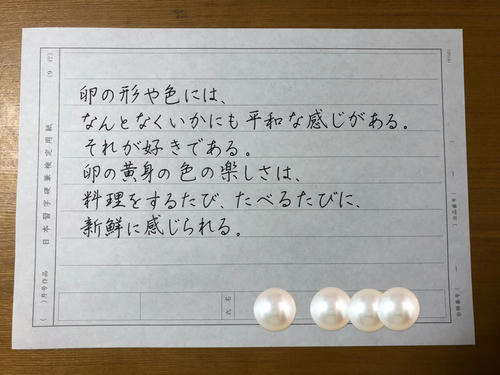 卵の形や色には、
なんとなくいかにも平和な感じがある。
それが好きである。
卵の黄身の色の楽しさは、
料理をするたび、たべるたびに、
新鮮に感じられる。
日本習字硬筆検定用紙
(　)月号作品
氏名